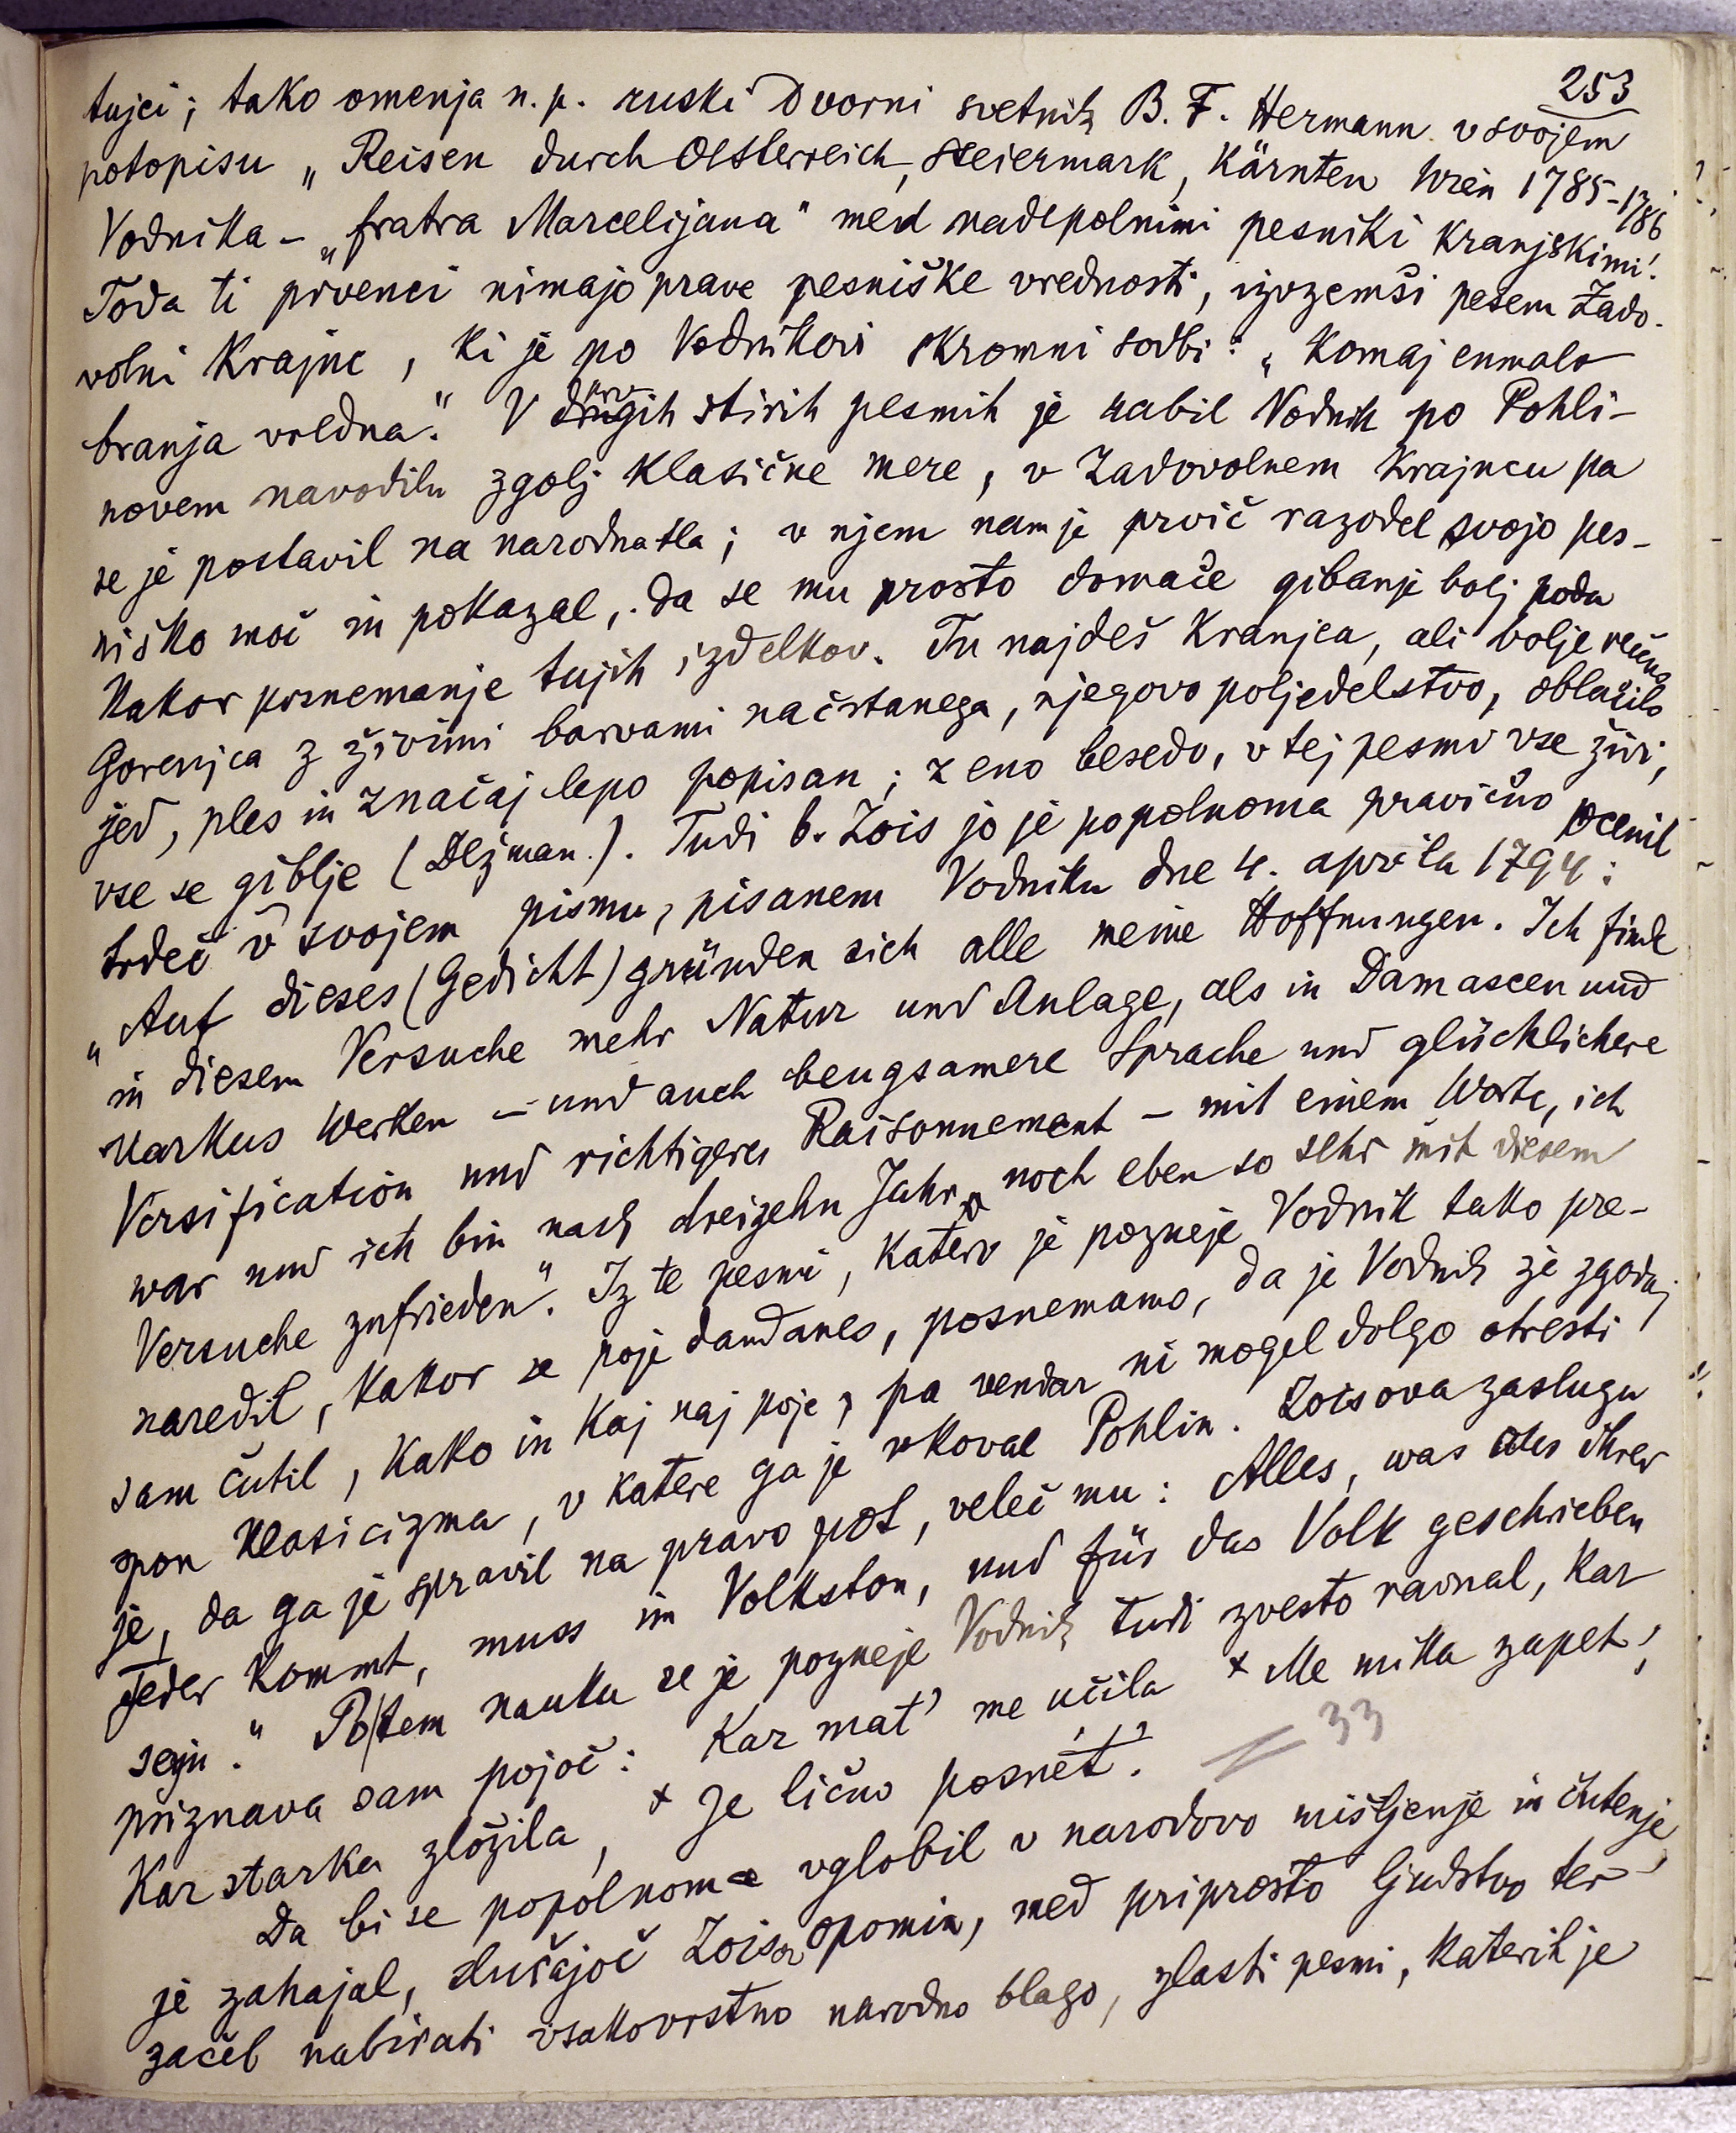 253
tujci; tako omenja n. p. ruski dvorni svetnik B. F. Hermann v svojem
potopisu „Reisen durch Oesterreich, Steiermark, Kärnten Krain 1785-1786
Vodnika - „fratra Marcelijana" med nadepolnimi pesniki kranjskimi!
Toda ti prvenci nimajo prave pesniške vrednosti, izvzemši pesem Zado-
volni Krajnc, ki je po Vodnikovi skromni sodbi: „komaj enmalo
branja vredna". V drugih štirih pesmih je rabil Vodnik po Pohli-
novem navodilu zgolj klasične mere, v Zadovolnem Krajncu pa
se je postavil na narodna tla; v njem nam je prvič razodel svojo pes-
niško moč in pokazal, da se mu prosto domače gibanje bolj poda
kakor posnemanje tujih izdelkov. Tu najdeš Kranjca, ali bolje rečeno
Gorenjca z živimi barvami načrtanega, njegovo poljedelstvo, oblačilo
jed, ples in značaj lepo popisan; z eno besedo, v tej pesmi vse živi,
vse se giblje (Dežman.). Tudi b. Zois jo je popolnoma pravično ocenil
trdeč v svojem pismu, pisanem Vodniku dne 4. aprila 1794:
„Auf dieses (Gedicht) gründen sich alle meine Hoffnungen. Ich finde
in diesem Versuche mehr Natur und Anlage, als in Damascen und
Markus Werken - und auch beugsamere Sprache und glücklichere
Versification und richtigeres Raisonnement - mit einem Worte, ich
war und ich bin nach dreizehn Jahren noch eben so sehr mit diesem
Versuche zufrieden". Iz te pesmi, katero je pozneje Vodnik tako pre-
naredil, kakor se poje dandanes, posnemamo, da je Vodnik že zgodaj
sam čutil, kako in kaj naj poje, pa vendar ni mogel dolgo otresti
spon klasicizma, v katere ga je vkoval Pohlin. Zoisova zasluga
je, da ga je spravil na pravo pot, veleč mu: Alles, was aus Ihrer
Feder kommt, muss im Volkston, und für das Volk geschrieben
sein." Po tem nauku se je pozneje Vodnik tudi zvesto ravnal, kar
priznava sam pojoč: Kar mat' me učila × Me mika zapet',
Kar starka zložila, × Je lično posnét'.
33
Da bi se popolnoma vglobil v narodovo mišljenje in čutenje
je zahajal, slušajoč Zoisov opomin, med priprosto ljudstvo ter
začel nabirati vsakovrstno narodno blago, zlasti pesmi, katerih je